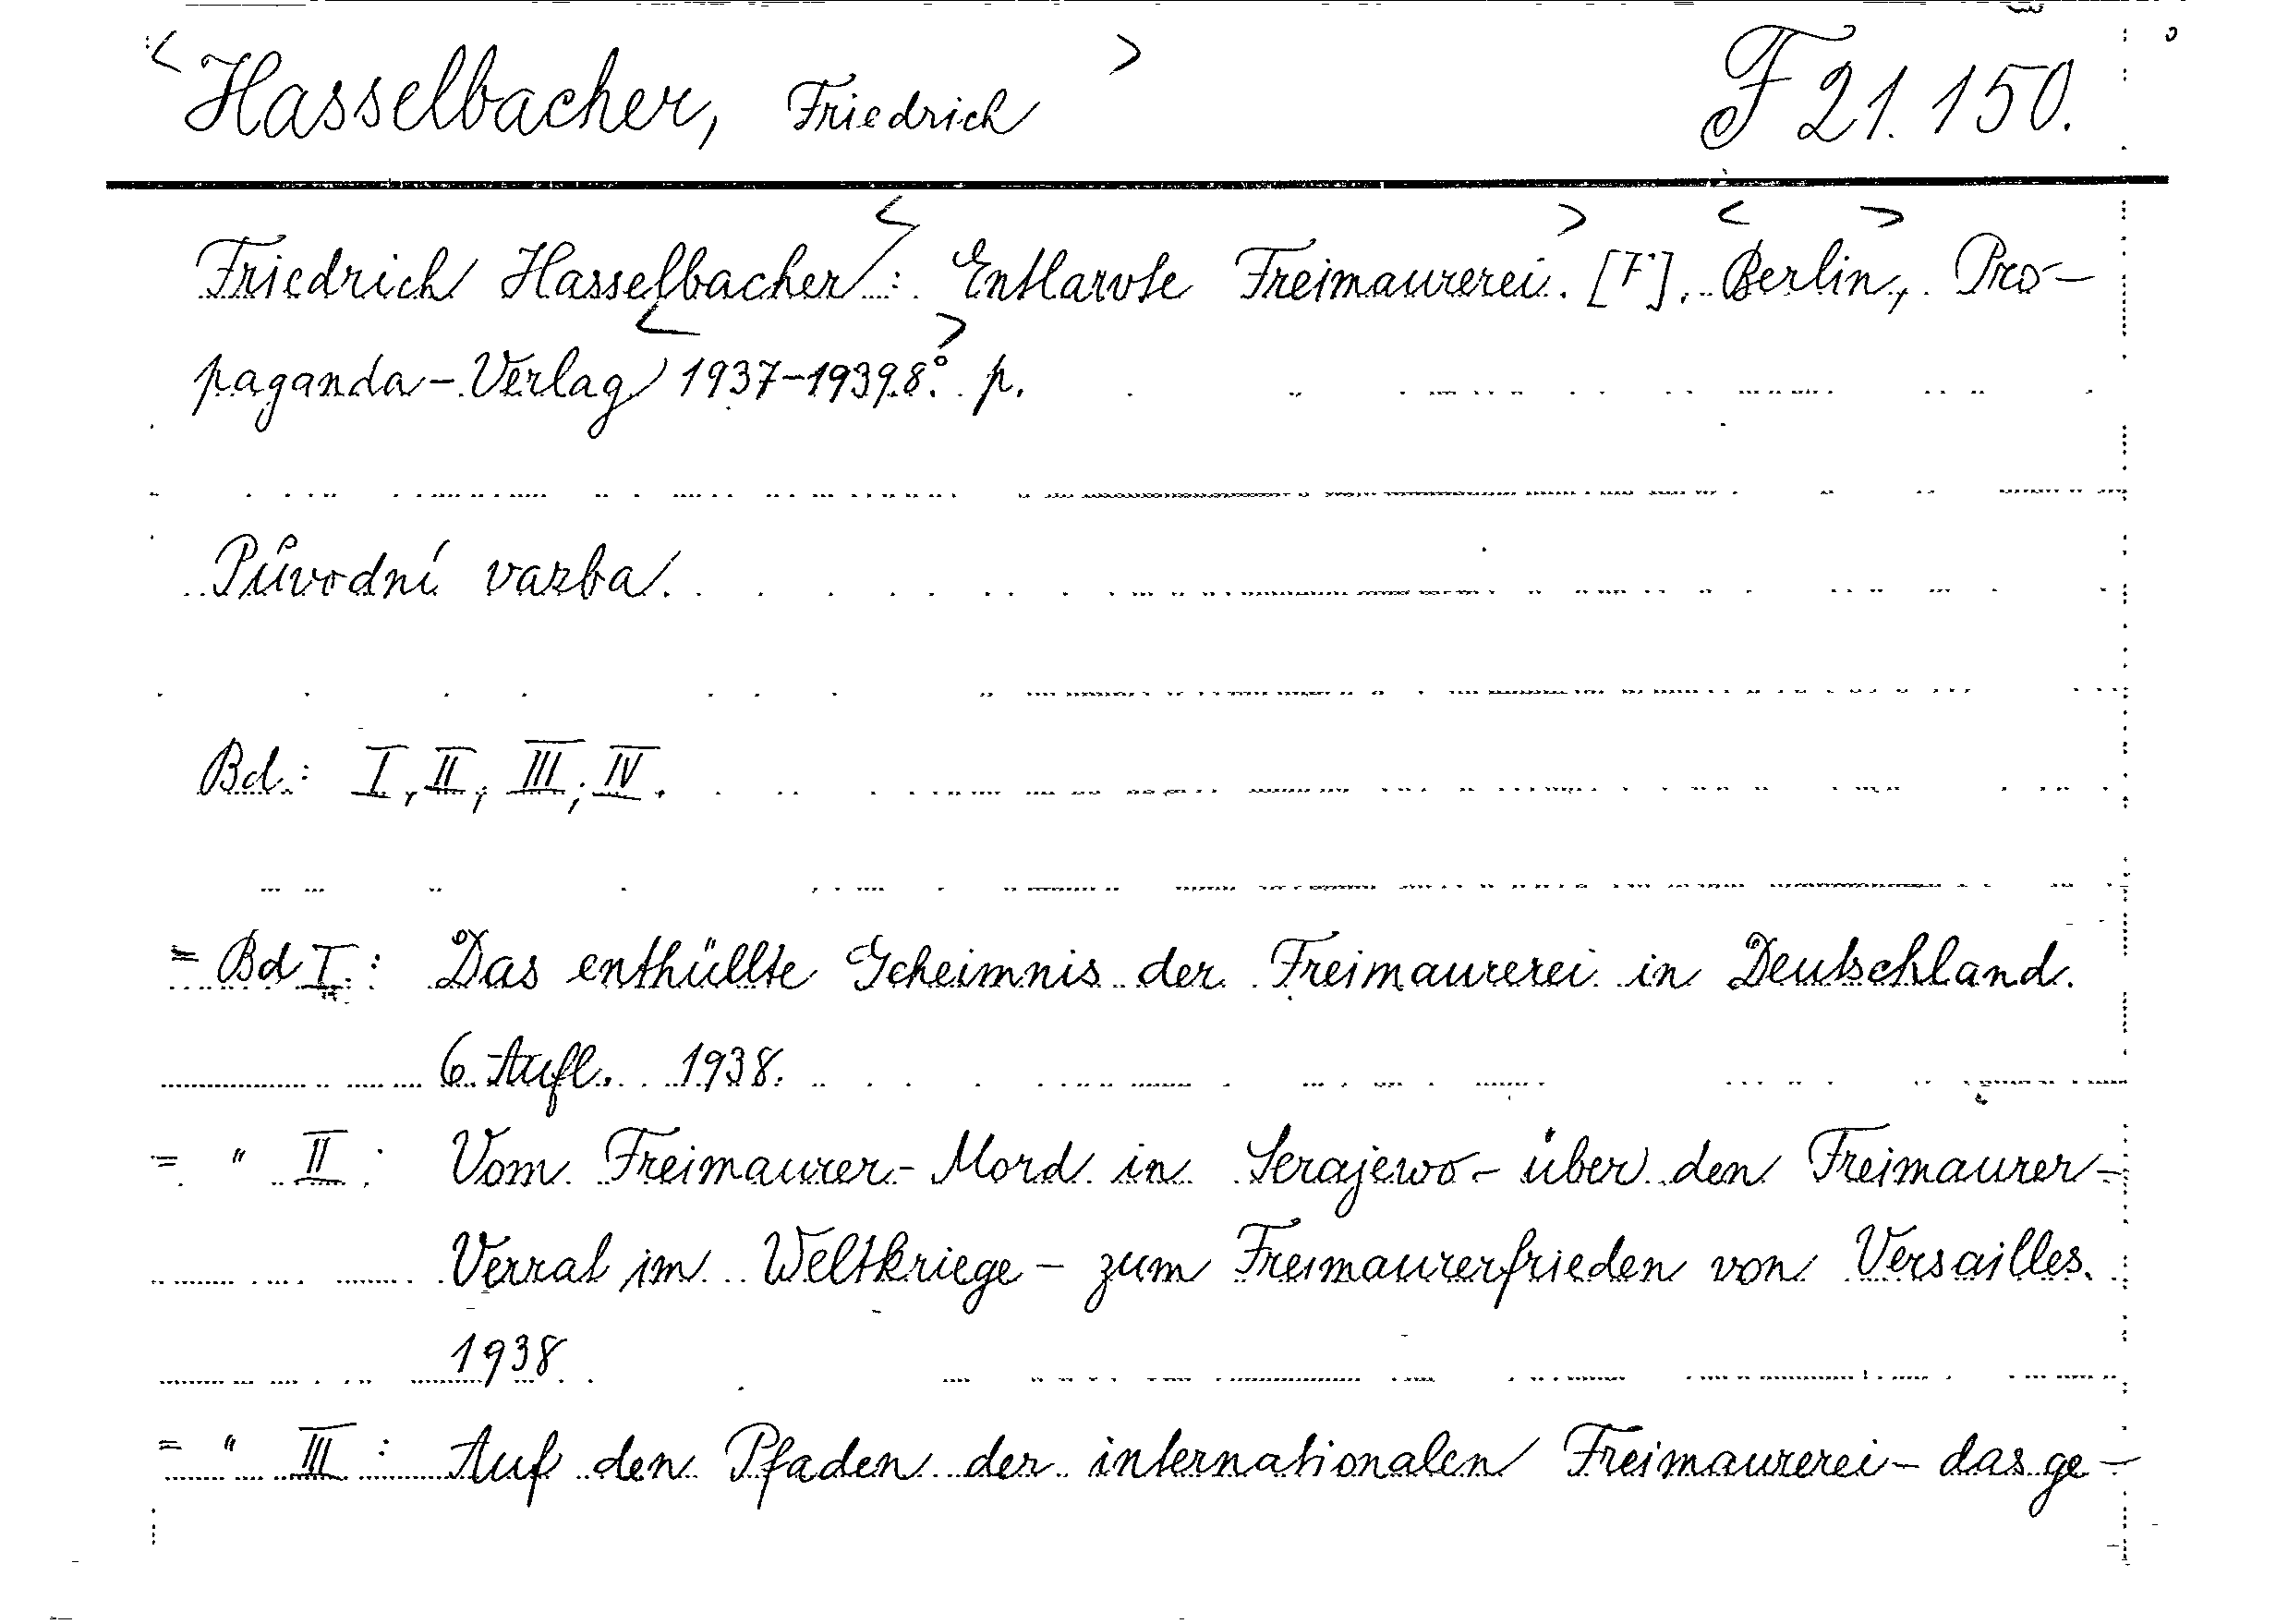 < Hasselbacher, Friedrich > F 21.150.
Friedrich Hasselbacher: < Entlarvte Freimaurerei. > [F]. < Berlin, > Pro-
paganda-Verlag < 1937-1939. > 8°. p.
Původní vazba.
Bd.: I, II, III, IV.
= Bd I.: Das enthüllte Geheimnis der Freimaurerei in Deutschland.
6. Aufl. 1938.
= " II: Vom Freimaurer-Mord in Serajewo - über den Freimaurer-
Verrat im Weltkriege - zum Freimaurerfrieden von Versailles.
1938
= " III: Auf den Pfaden der internationalen Freimaurerei - das ge-